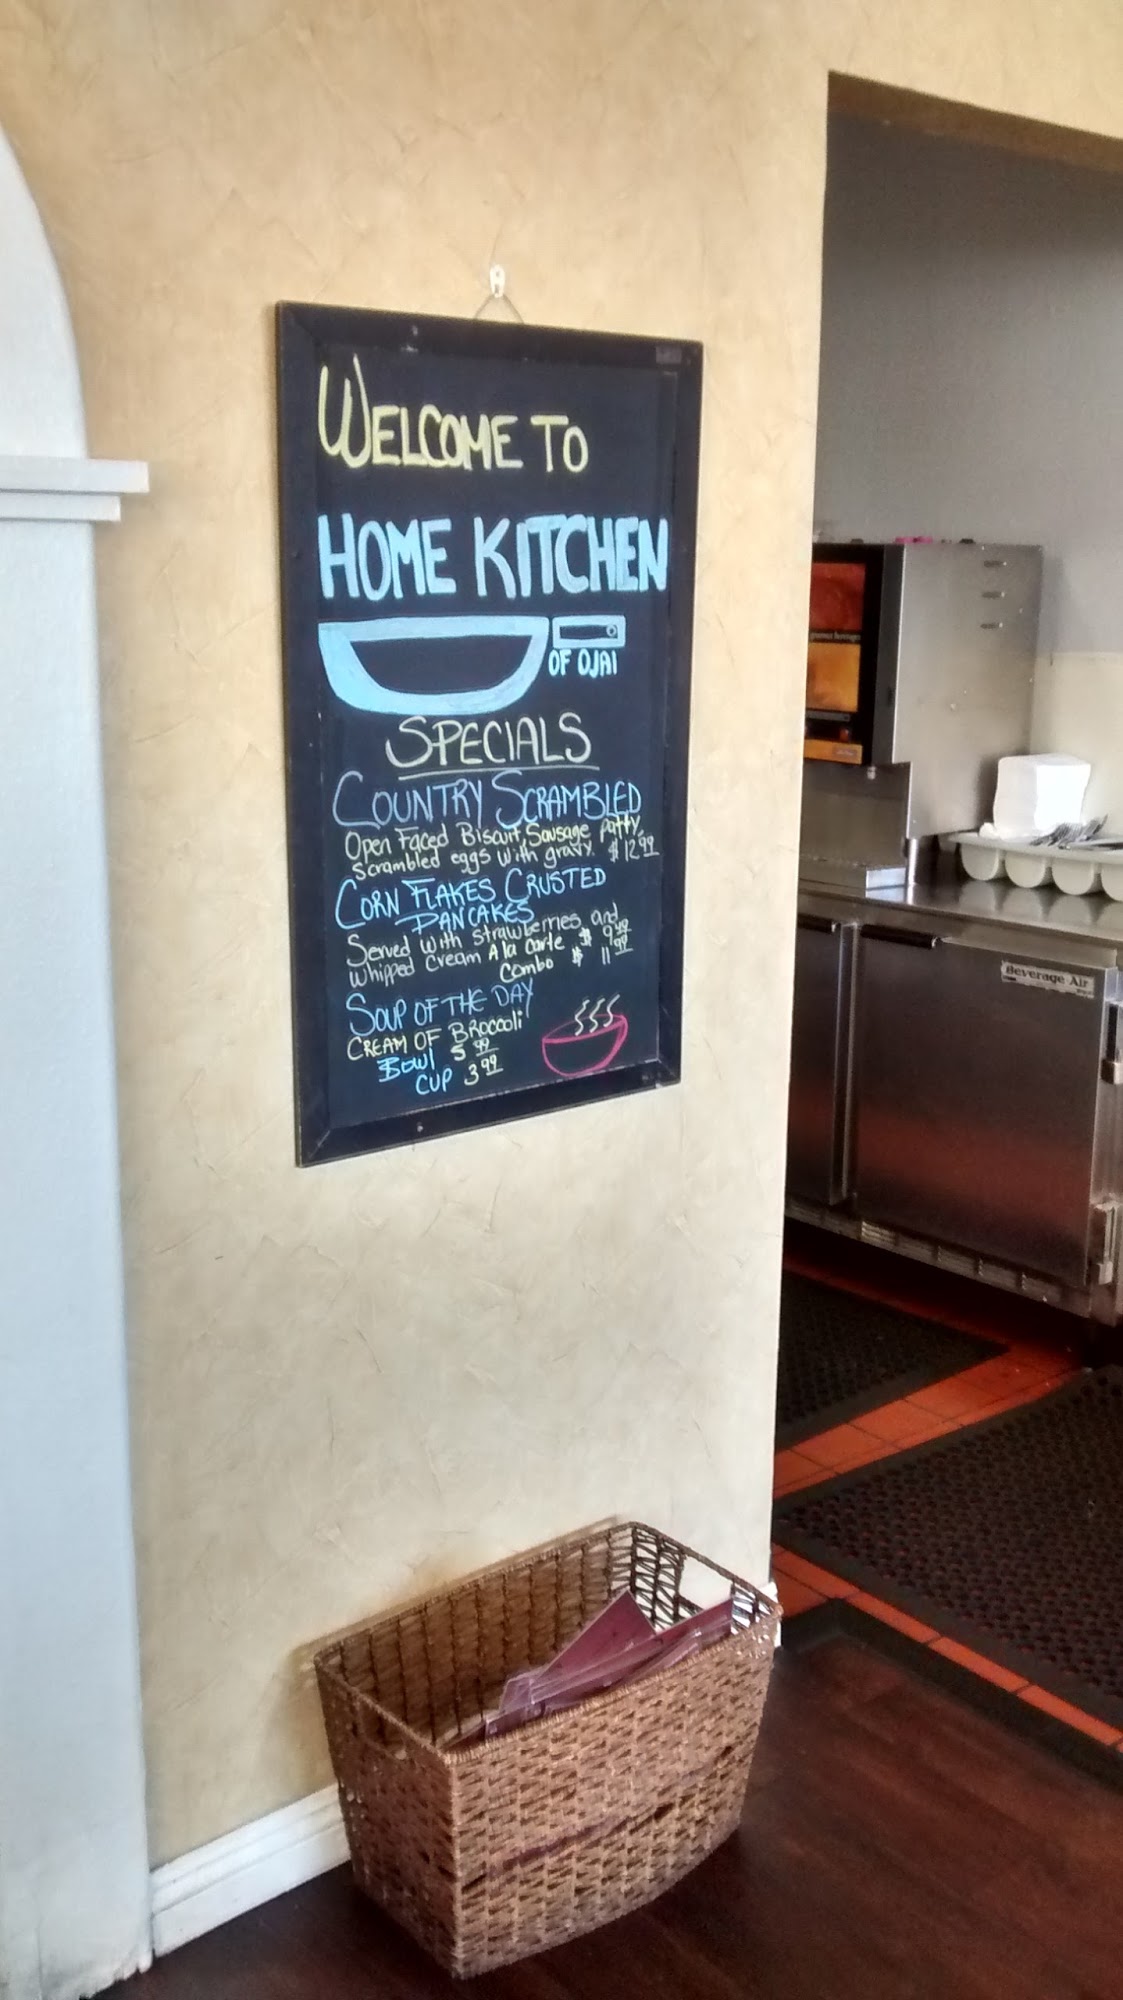 WELCOME TO
HOME KITCHEN
OF OJAI
SPECIALS
COUNTRY SCRAMBLED
Open Faced Biscuit, Sausage patty,
Scrambled eggs with gravy. $12.99
CORN FLAKES CRUSTED
PANCAKES
Served with strawberries and
whipped cream A la carte $ 9.49
Combo $ 11.99
SOUP OF THE DAY
CREAM OF BROCCOLI
BOWL 5.99
CUP 3.99
Beverage Air